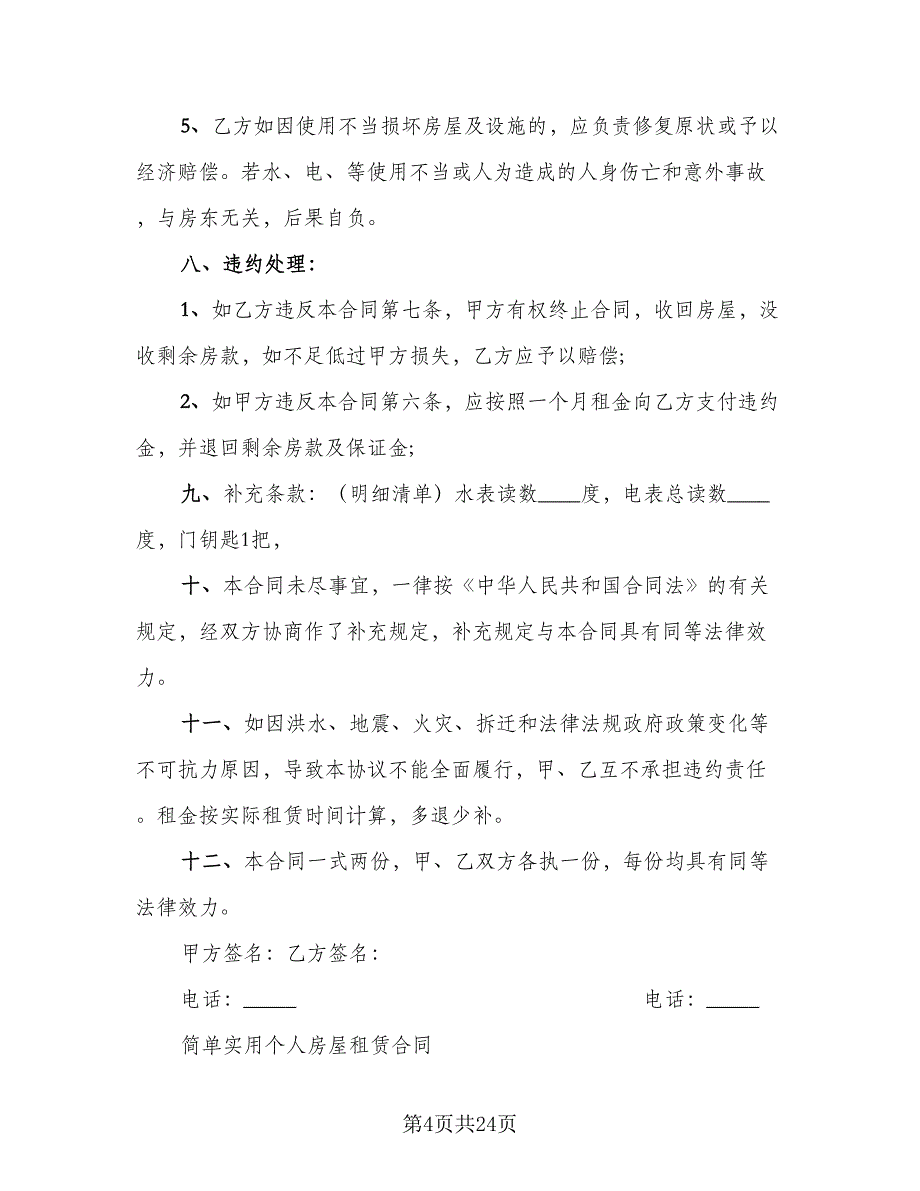 5、乙方如因使用不当损坏房屋及设施的，应负责修复原状或予以
经济赔偿。若水、电、等使用不当或人为造成的人身伤亡和意外事故
，与房东无关，后果自负。
八、违约处理：
1、如乙方违反本合同第七条，甲方有权终止合同，收回房屋，没
收剩余房款，如不足低过甲方损失，乙方应予以赔偿;
2、如甲方违反本合同第六条，应按照一个月租金向乙方支付违约
金，并退回剩余房款及保证金;
九、补充条款：（明细清单）水表读数____度，电表总读数____
度，门钥匙1把，
十、本合同未尽事宜，一律按《中华人民共和国合同法》的有关
规定，经双方协商作了补充规定，补充规定与本合同具有同等法律效
力。
十一、如因洪水、地震、火灾、拆迁和法律法规政府政策变化等
不可抗力原因，导致本协议不能全面履行，甲、乙互不承担违约责任
。租金按实际租赁时间计算，多退少补。
十二、本合同一式两份，甲、乙双方各执一份，每份均具有同等
法律效力。
甲方签名：乙方签名：
电话：_____ 电话：_____
简单实用个人房屋租赁合同
第4页共24页